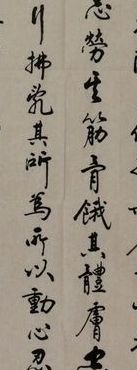 志勞其筋骨餓其體膚空
行拂亂其所為所以動心忍